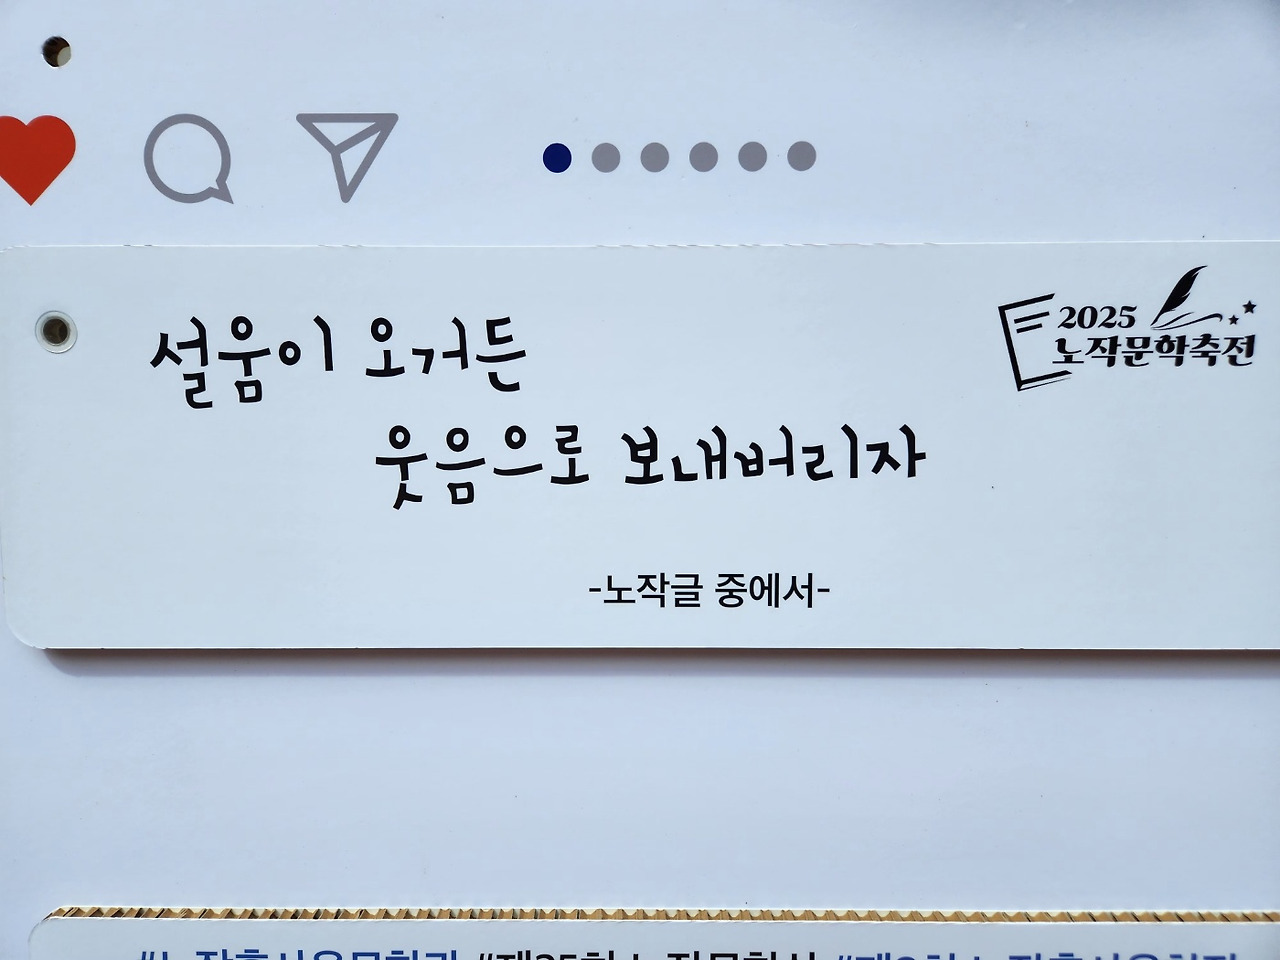 2025
노작문학축전
설움이 오거든
웃음으로 보내버리자
-노작글 중에서-